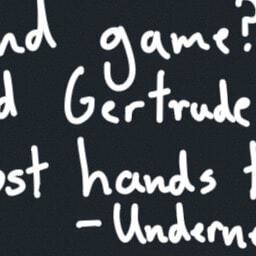 nd game?
d Gertrude
ost hands t
- Underne